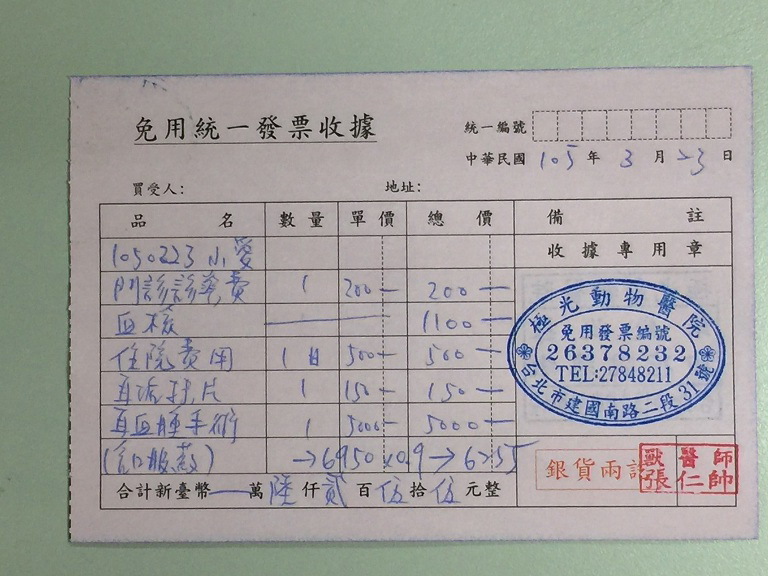 免用統一發票收據
統一編號
中華民國 105 年 3 月 23 日
買受人: 地址:
品 名 數 量 單 價 總 價 備 註
收據專用章
1050223 小愛
門診診察費 1 200— 200—
血檢 1100—
住院費用 1日 500— 500—
耳抹片 1 150— 150—
耳血腫手術 1 5000— 5000—
(含口服藥) →6950×0.9→6255
合計新臺幣 — 萬 陸 仟 貳 百 伍 拾 伍 元整
極光動物醫院
免用發票編號
26378232
TEL:27848211
台北市建國南路二段31號
銀貨兩訖
獸醫師
張仁帥